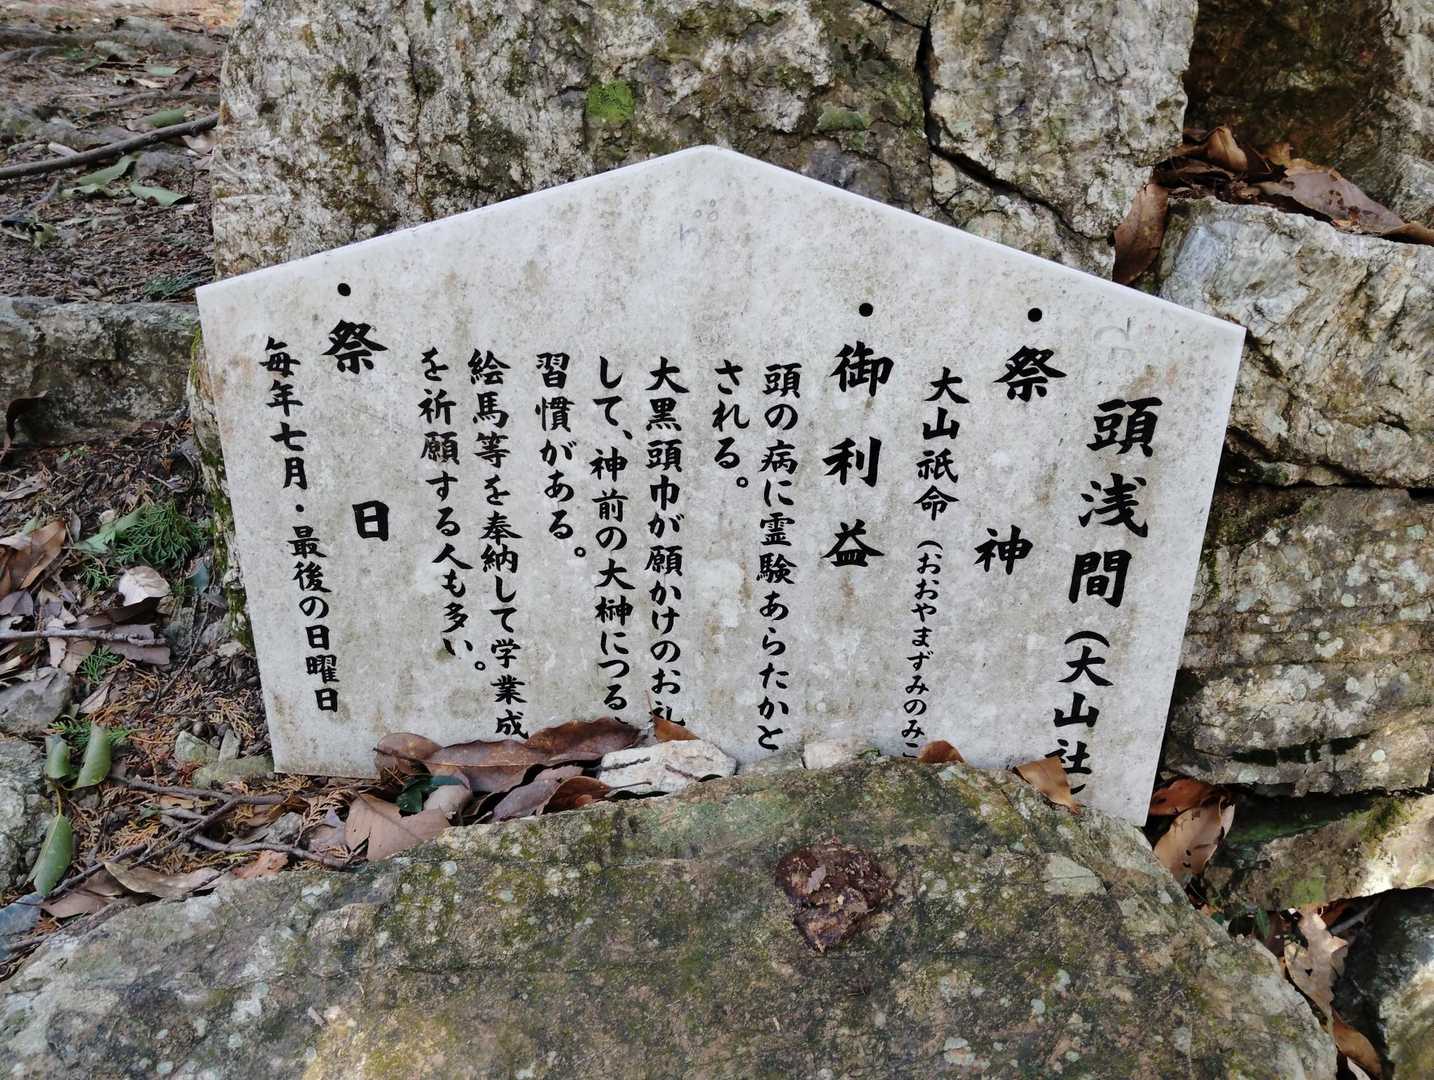 頭浅間（大山社）
・祭神
大山祇命（おおやまずみのみこ
・御利益
頭の病に霊験あらたかと
される。
大黒頭巾が願かけのお礼
して、神前の大榊につる
習慣がある。
絵馬等を奉納して学業成
を祈願する人も多い。
・祭日
毎年七月・最後の日曜日